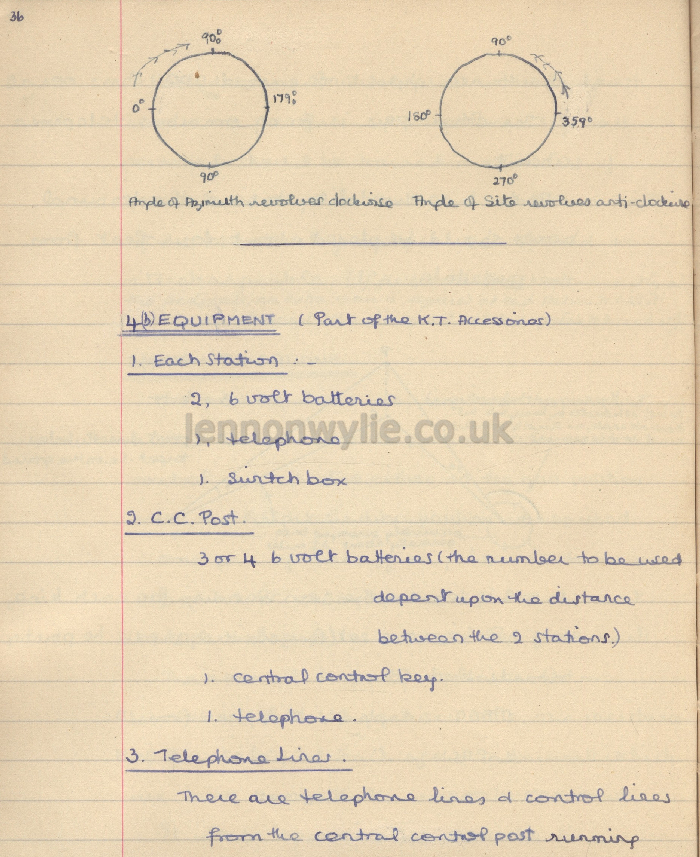 36
90°
0°
179°
90°
Angle of Azimuth revolves clockwise
90°
180°
359°
270°
Angle of Site revolves anti-clockwise
4(b) EQUIPMENT (Part of the K.T. Accessories)
1. Each Station :-
2, 6 volt batteries
1, telephone
1. Switch box
lennonwylie.co.uk
2. C.C. Post.
3 or 4 6 volt batteries (the number to be used
depent upon the distance
between the 2 stations.)
1. central control key.
1. telephone.
3. Telephone Lines.
There are telephone lines & control lines
from the central control post running